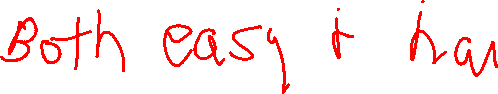 Both easy + har